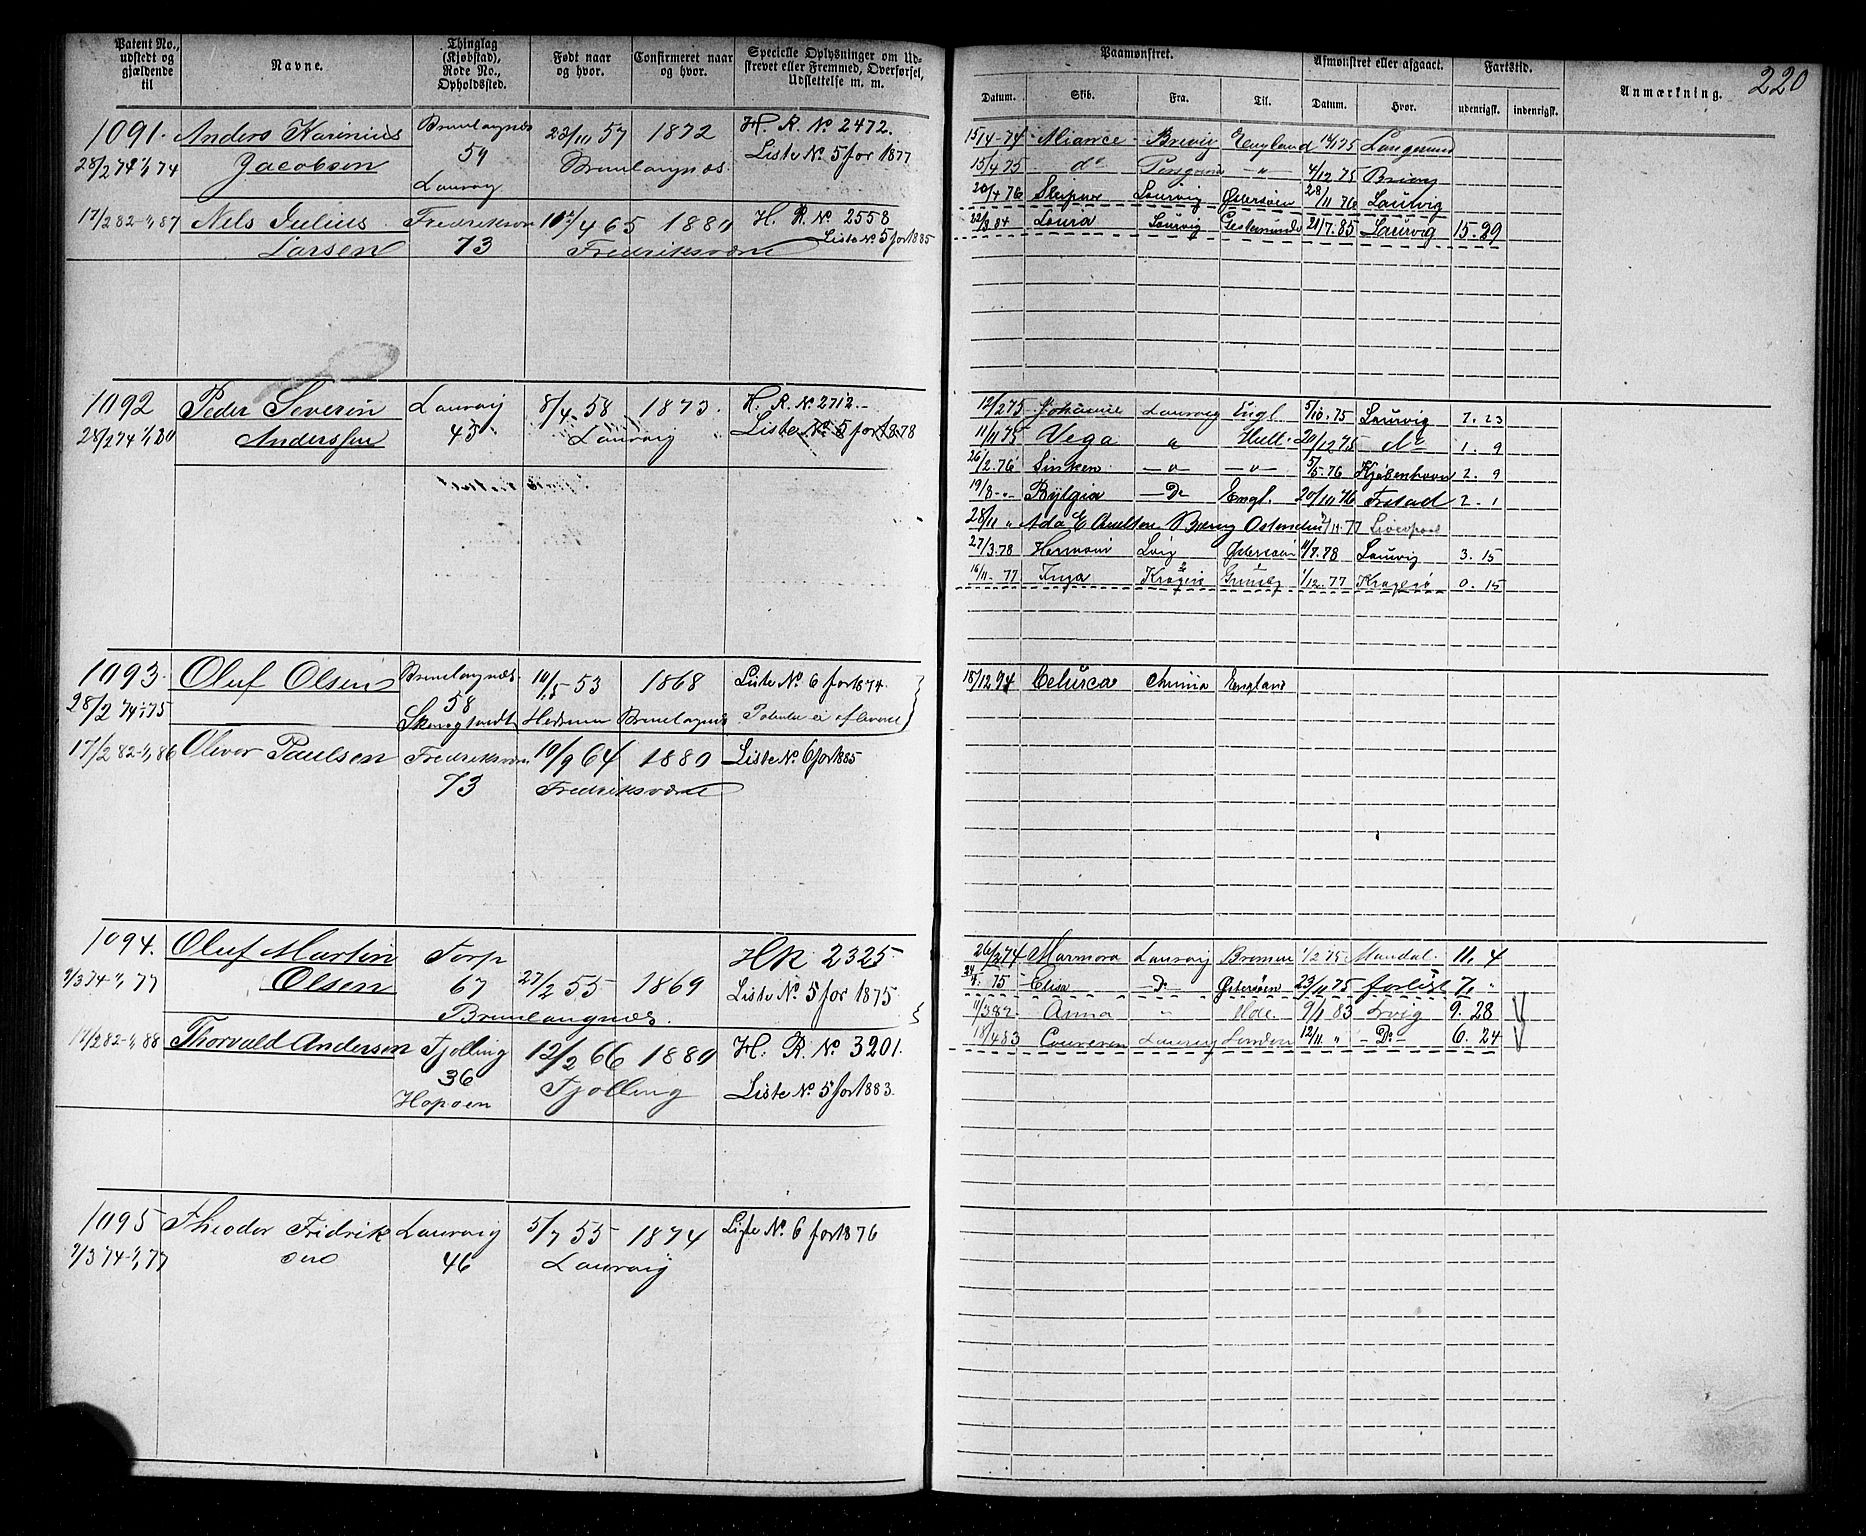 Patent No., udstedt og gjældende til
Navne.
Thinglag (Kjøbstad), Rode No., Opholdssted.
Født naar og hvor.
Confirmeret naar og hvor.
Specielle Oplysninger om Udskrevet eller Fremmed, Overførsel, Udslettelse m. m.
Paamønstret.
Afmønstret eller afgaaet.
Fartstid.
Anmærkning.
220
Datum. Skib. Fra. Til. Datum. Hvor. udenrigsk. indenrigsk.
1091. Anders Karinius Brunlagnæs 23/11 57 1872 H. R. No 2472.
28/2 74 74 Jacobsen 59 Brunlangnæs Liste No 5 for 1877
Laurvig
17/2 82 87 Nels Julius Fredriksværn 4 65 1880 H. R. No 2558
Larsen 73 Fredriksværn Liste No 5 for 1885
15/4-74 Aliance Brevig England Langesund
15/4 75 do "  4/12 75 Brevig
20/4 76 Sleipner Laurvig Østersøen 28/11 76 Laurvig
84 Laura Laurvig Gestemünde 21/7.85 Laurvig 15.29
1092 Peder Severin Laurvig 8/4 58 1873. H. R. No 2712.
28/2 74 80 Anderssen 45 Laurvig Liste No 5 for 1878
12/2 75 Johanne Laurvig Engl 5/10.75 Laurvig 7.23
11/11 75 Vega " Hull 20/12 75 Do 1.9
26/2.76 Sirken - " - - " - 5/5.76 Kjøbenhavn 2.9
19/8 - " - Bylgia - Do Engl. 20/10 76 Frstad 2.1
28/11 " Ada E Oulton Brevig Ostindien 11.77 Liverpool
27/3.78 Hermann Lvig Østersøen 7.78 Laurvig 3.15
16/11.77 Inga Kragerø Grimsby 1/12.77 Kragerø 0.15
1093. Oluf Olsen Brunlagnæs 10/5 53 1868 Liste No 6 for 1874.
28/2 74 75 58
Hedrum Brunlagnæs ei afleveret
17/2 82 86 Oliver Paulsen Fredriksværn 10/9 64 1880 Liste No 6 for 1885
73 Fredriksværn
18/12 74 Celusca England
1094. Oluf Martin Torp HR 2325
9/3 74 77 Olsen 67 27/2 55 1869 Liste No 5 for 1875
Brunlangnæs.
17/2 82 88 Thorvald Andersen Tjølling 12/2 66 1880 H. R. No 3201.
36 Tjølling Liste No 5 for 1883.
Hapøen
74 Marmora Laurvig Bremen 1/2 75 Mandal 11.4
75 Elise - Do Østersøen 23/11 75 forlist 7. "
11/3 82 Anna " 9/1 83 Lrvig 9.28
18/4 83 Laurvig London 12/11 " - Do - 6.24
1095 Theodor Fridrik Laurvig 5/7 55 1874 Liste No 6 for 1876
9/3 74 77 46 Laurvig